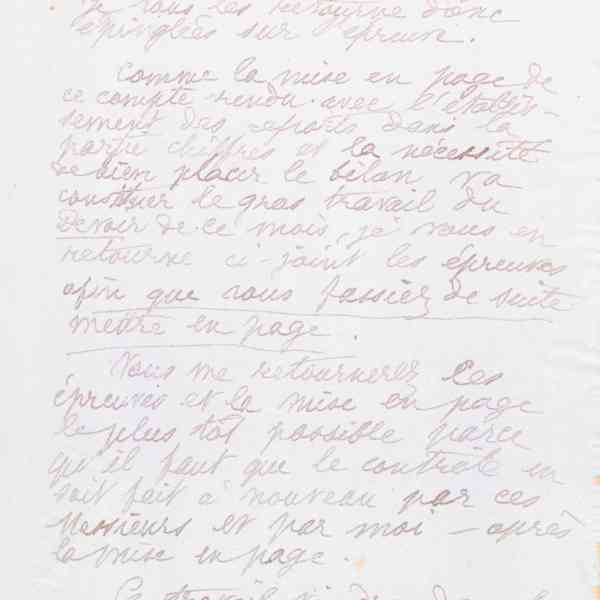 je vous les retourne donc
épinglées sur épreuve.
Comme la mise en page de
ce compte rendu avec l'établis-
sement des reports dans la
partie chiffres et la nécessité
de bien placer le bilan va
constituer le gros travail du
Devoir de ce mois, je vous en
retourne ci-joint les épreuves
afin que vous fassiez de suite
mettre en page.
Vous me retournerez ces
épreuves et la mise en page
le plus tôt possible parce
qu'il faut que le contrôle en
soit fait à nouveau par ces
Messieurs et par moi - après
la mise en page.
Ce travail